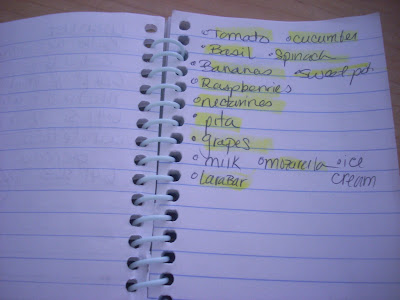 • Tomato • cucumber
• Basil • Spinach
• Bananas • Sweet pot.
• Raspberries
• nectarines
• pita
• grapes
• milk • mozzerella • ice cream
• LaraBar